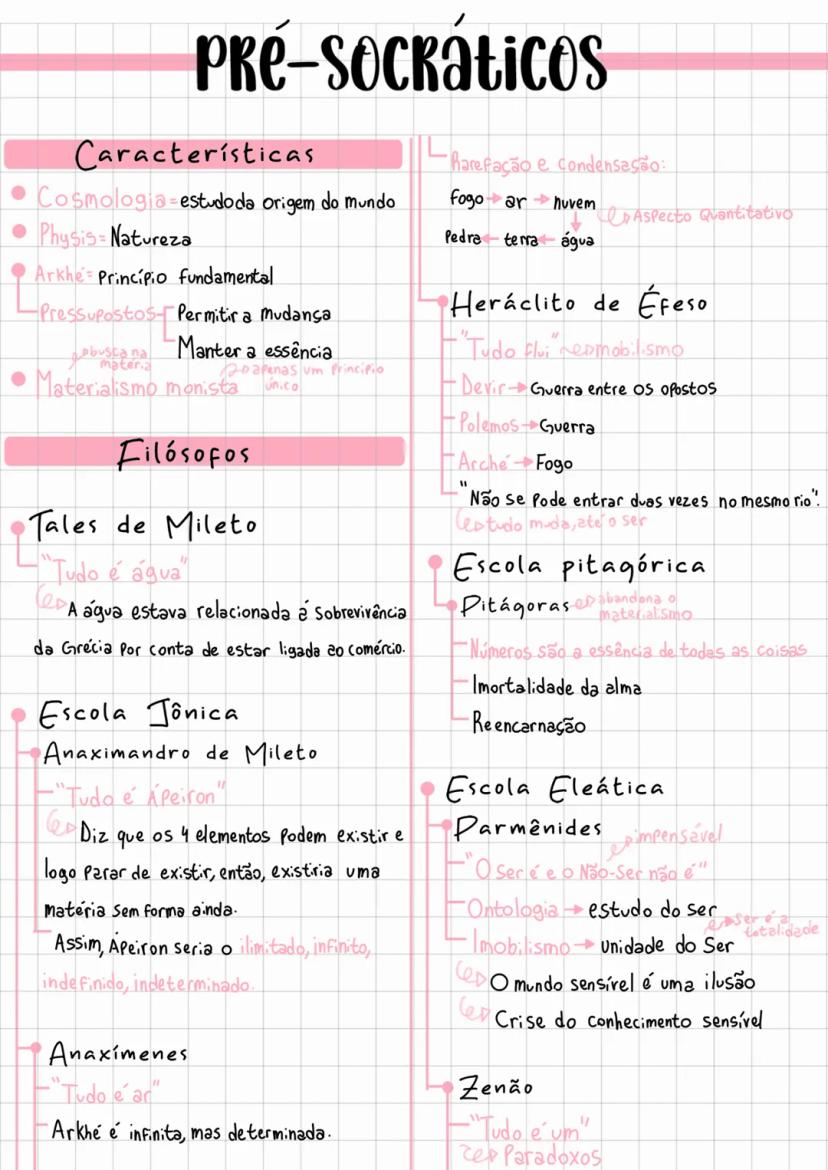 PRÉ-SOCRÁTICOS
Características
Cosmologia = estudo da origem do mundo
Physis = Natureza
Arkhé = Princípio fundamental
Pressupostos
Permitir a mudança
Manter a essência
busca na
matéria
apenas um princípio
único
Materialismo monista
Filósofos
Tales de Mileto
"Tudo é água"
A água estava relacionada á sobrevivência
da Grécia por conta de estar ligada ao comércio.
Escola Jônica
Anaximandro de Mileto
"Tudo é Ápeiron"
Diz que os 4 elementos podem existir e
logo parar de existir, então, existiria uma
matéria sem forma ainda.
Assim, Ápeiron seria o ilimitado, infinito,
indefinido, indeterminado.
Anaxímenes
"Tudo é ar"
Arkhé é infinita, mas determinada.
Rarefação e condensação:
Fogo → ar → nuvem
Aspecto Quantitativo
Pedra ← terra ← água
Heráclito de Éfeso
"Tudo flui" mobilismo
Devir → Guerra entre os opostos
Polemos → Guerra
Arché → Fogo
"Não se pode entrar duas vezes no mesmo rio".
tudo muda, até o ser
Escola pitagórica
Pitágoras
abandona o
materialismo
Números são a essência de todas as coisas
Imortalidade da alma
Reencarnação
Escola Eleática
Parmênides
impensável
"O Ser é e o Não-Ser não é"
Ontologia → estudo do Ser
Ser é a
totalidade
Imobilismo → unidade do Ser
O mundo sensível é uma ilusão
Crise do conhecimento sensível
Zenão
"Tudo é um"
Paradoxos